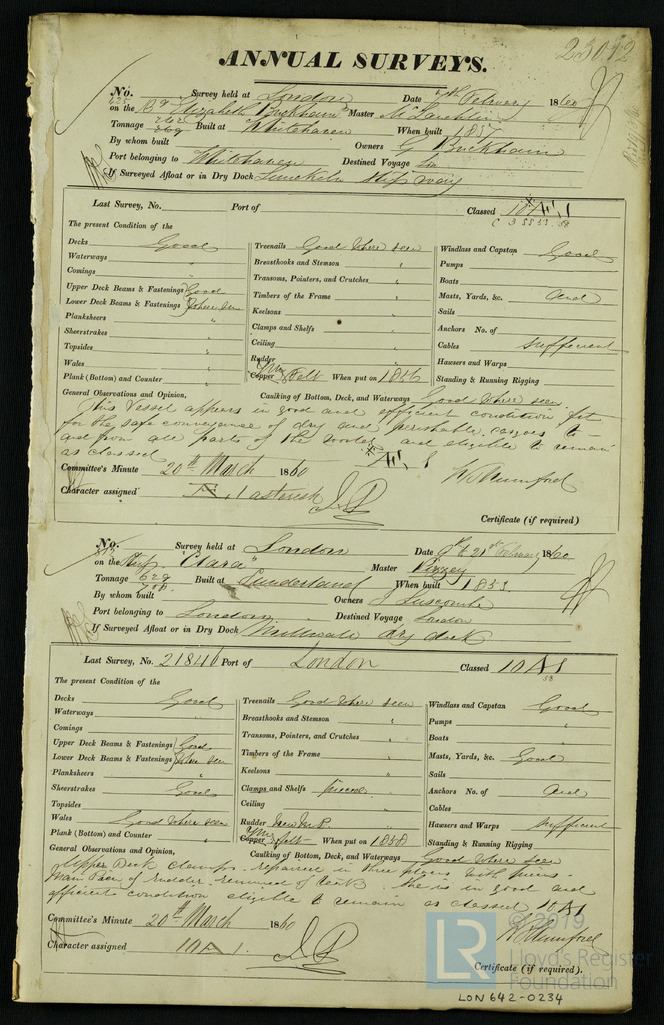 23012
ANNUAL SURVEYS.
No. Survey held at London Date February 1860
on the Bg Elizabeth Buckham Master McLaughlin
Tonnage 262 269 Built at Whitehaven When built 1857
By whom built Owners G Buckham
Port belonging to Whitehaven Destined Voyage
If Surveyed Afloat or in Dry Dock Limekiln Slip way
Last Survey, No. Port of Classed
The present Condition of the
Decks Good
Waterways "
Comings "
Upper Deck Beams & Fastenings Good
Lower Deck Beams & Fastenings where seen
Planksheers "
Sheerstrakes "
Topsides "
Wales "
Plank (Bottom) and Counter "
Treenails Good where seen
Breasthooks and Stemson "
Transoms, Pointers, and Crutches "
Timbers of the Frame "
Keelsons "
Clamps and Shelfs "
Ceiling "
Rudder "
Copper YM Felt When put on 1856
Windlass and Capstan Good
Pumps "
Boats "
Masts, Yards, &c. and
Sails
Anchors No. of
Cables sufficient
Hawsers and Warps
Standing & Running Rigging
General Observations and Opinion, Caulking of Bottom, Deck, and Waterways Good where seen
This Vessel appears in good and efficient condition fit
for the safe conveyance of dry and perishable cargoes to
and from all parts of the World, and eligible to remain
as classed
Committee's Minute 20th March 1860
Character assigned 1 asterisk
W Mumford
Certificate (if required)
No. Survey held at London Date 9th & 21st February 1860
on the Ship "Clara" Master
Tonnage Built at Sunderland When built 1853
By whom built Owners J Luscombe
Port belonging to London Destined Voyage London
If Surveyed Afloat or in Dry Dock Millwall dry dock
Last Survey, No. 21846 Port of London Classed 10 A 1
58
The present Condition of the
Decks Good
Waterways "
Comings "
Upper Deck Beams & Fastenings Good
Lower Deck Beams & Fastenings where seen
Planksheers "
Sheerstrakes Good
Topsides
Wales Good where seen
Plank (Bottom) and Counter "
Treenails Good where seen
Breasthooks and Stemson "
Transoms, Pointers, and Crutches "
Timbers of the Frame "
Keelsons "
Clamps and Shelfs pieced
Ceiling "
Rudder New M.P.
Copper YM felt When put on 1858
Windlass and Capstan Good
Pumps "
Boats "
Masts, Yards, &c. Good
Sails
Anchors No. of and
Cables
Hawsers and Warps sufficient
Standing & Running Rigging
General Observations and Opinion, Caulking of Bottom, Deck, and Waterways Good where seen
Upper Deck clamps repaired in three places with pieces
Main Piece of rudder renewed of teak. She is in good and
efficient condition eligible to remain as classed 10 A 1
Committee's Minute 20th March 1860
Character assigned 10 A 1.
W Mumford
Certificate (if required).
© 2019
LR Lloyd's Register
Foundation
LON 642-0234